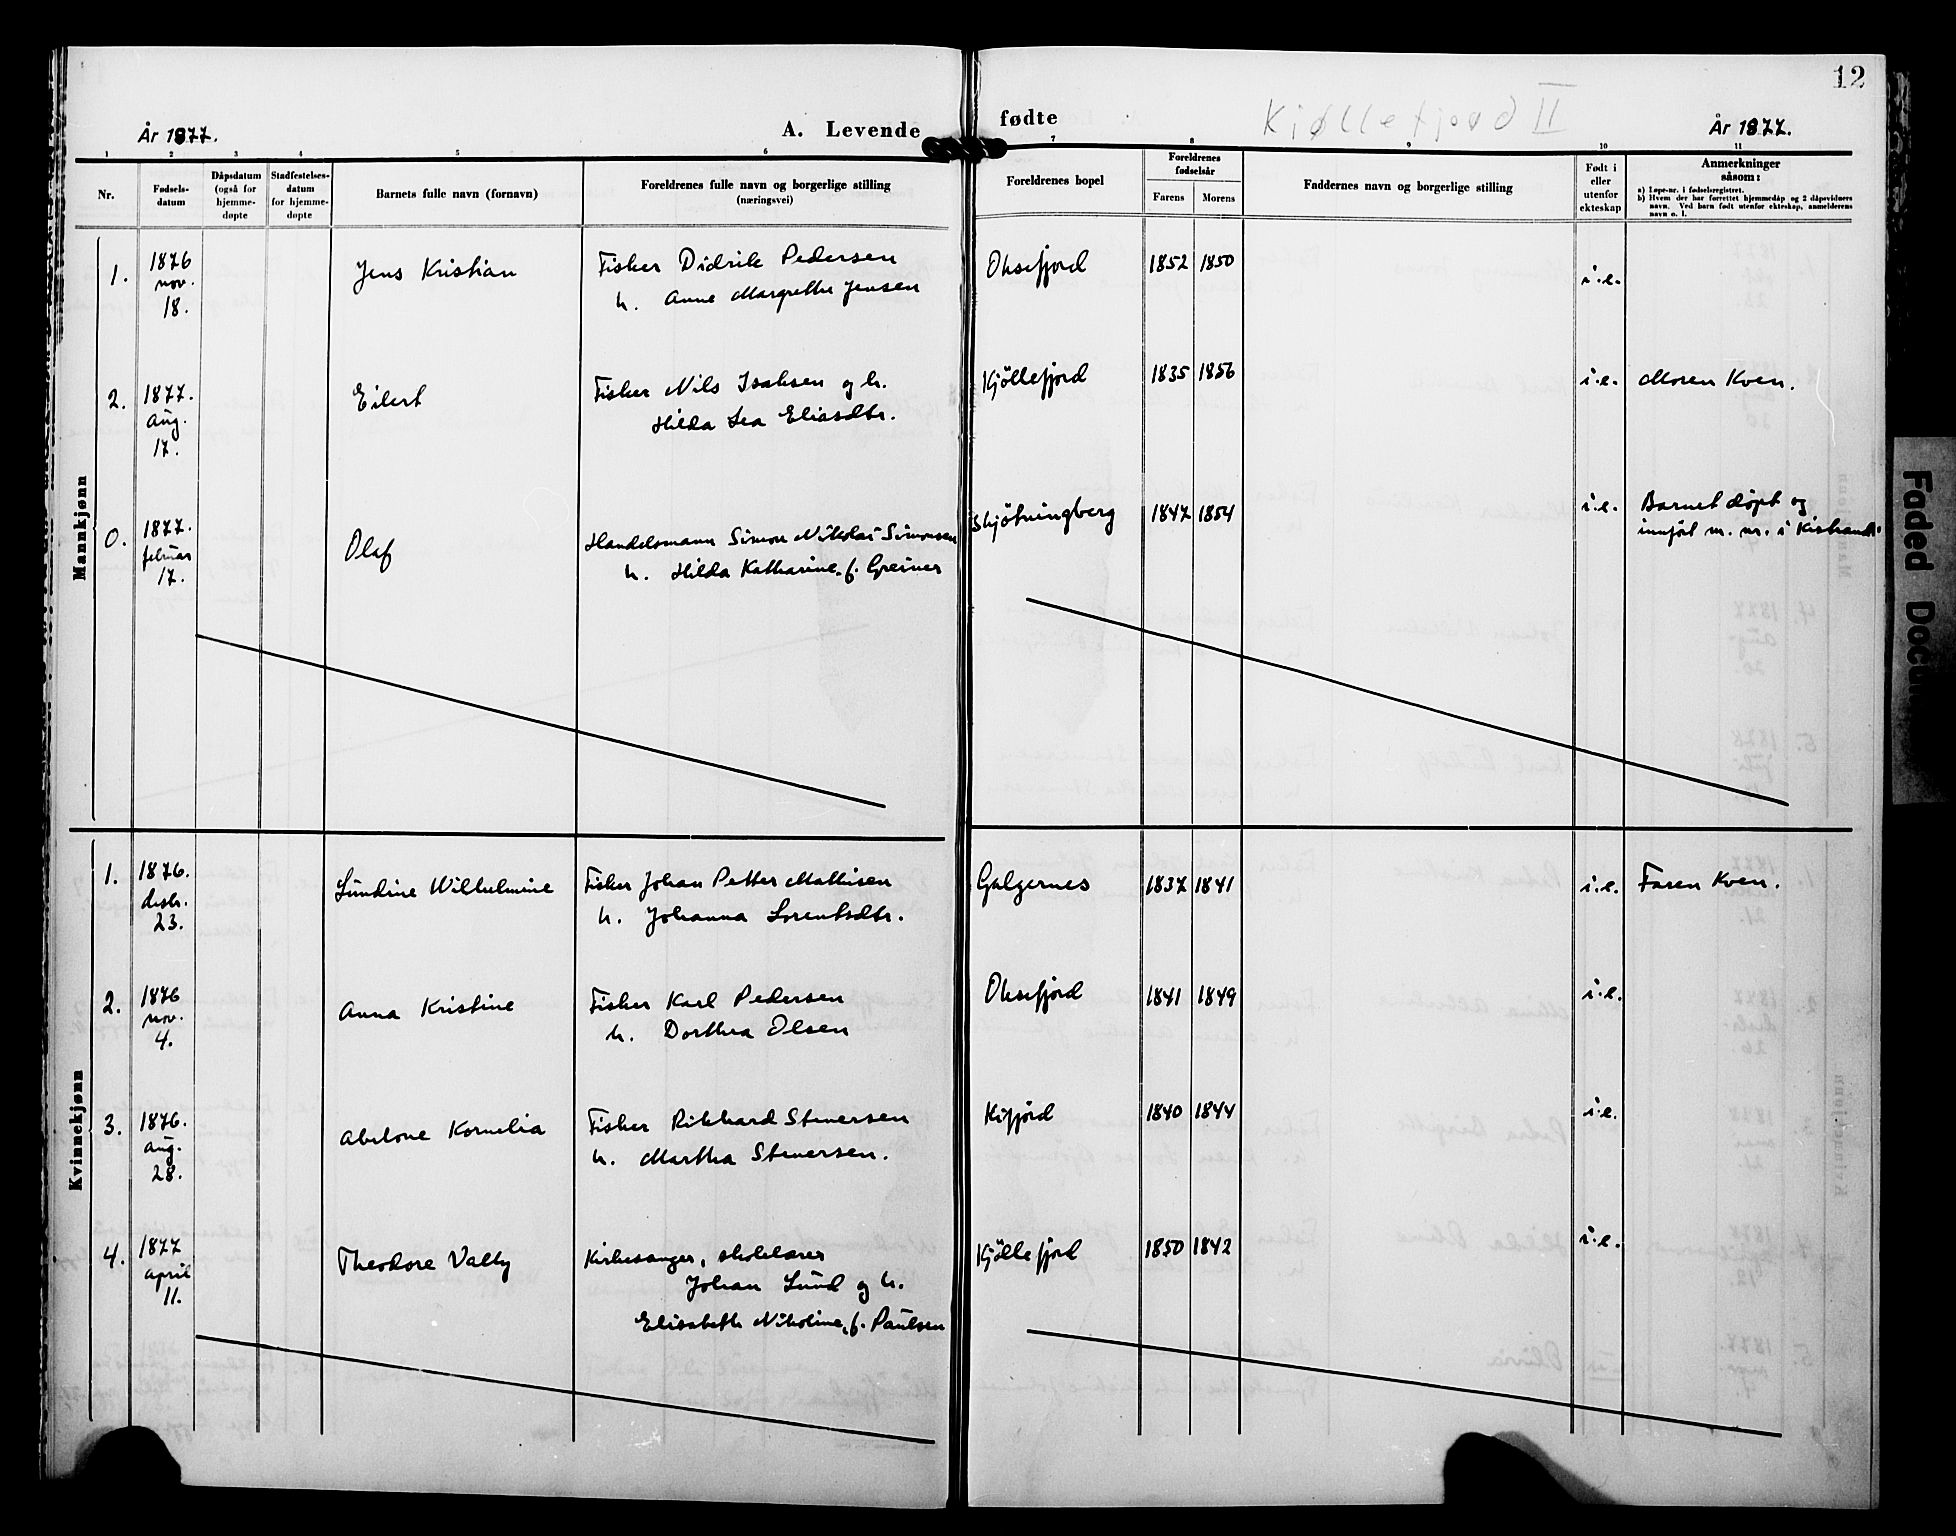 12
Kjøllefjord II
År 1877.
A. Levende fødte
År 1877.
1 2 3 4 5 6 7 8 9 10 11
Nr.
Fødsels-
datum
Dåpsdatum
(også for
hjemme-
døpte
Stadfestelses-
datum
for hjemme-
døpte
Barnets fulle navn (fornavn)
Foreldrenes fulle navn og borgerlige stilling
(næringsvei)
Foreldrenes bopel
Foreldrenes
fødselsår
Farens Morens
Faddernes navn og borgerlige stilling
Født i
eller
utenfor
ekteskap
Anmerkninger
såsom:
a) Løpe-nr. i fødselsregistret.
b) Hvem der har forrettet hjemmedåp og 2 dåpsvidners
navn. Ved barn født utenfor ekteskap, anmelderens
navn o. l.
Mannkjønn
1. 1876 nov. 18. Jens Kristian
Fisker Didrik Pedersen
h. Anne Margrethe Jensen
Oksefjord 1852 1850 i.e.
2. 1877. aug. 17. Eilert
Fisker Nils Isaksen og h.
Hilda Lea Eliasdtr.
Kjöllefjord 1835 1856 i.e. Moren Kven.
0. 1877. februar 17. Olaf
Handelsmann Simon Nikolai Simonsen
h. Hilda Katharine, f. Greiner
Skjötningberg 1847 1854 i.e. Barnet døpt og
innført m. nr. i Kistrand
Kvinnekjønn
1. 1876. desbr. 23. Lundine Wilhelmine
Fisker Johan Petter Mathisen
h. Johanna Lorentsdtr.
Galgernes 1837 1841 i.e. Faren Kven.
2. 1876 nov. 4. Anna Kristine
Fisker Karl Pedersen
h. Dorthea Olsen
Oksefjord 1841 1849 i.e.
3. 1876. aug. 28. Abelone Kornelia
Fisker Rikhard Stenersen
h. Martha Stenersen.
Kifjord 1840 1844 i.e.
4. 1877 april 11. Theodore Valby
Kirkesanger, skolelærer
Johan Lund og h.
Elisabeth Nikoline, f. Paulsen
Kjöllefjord 1850 1842 i.e.
Faded Docu